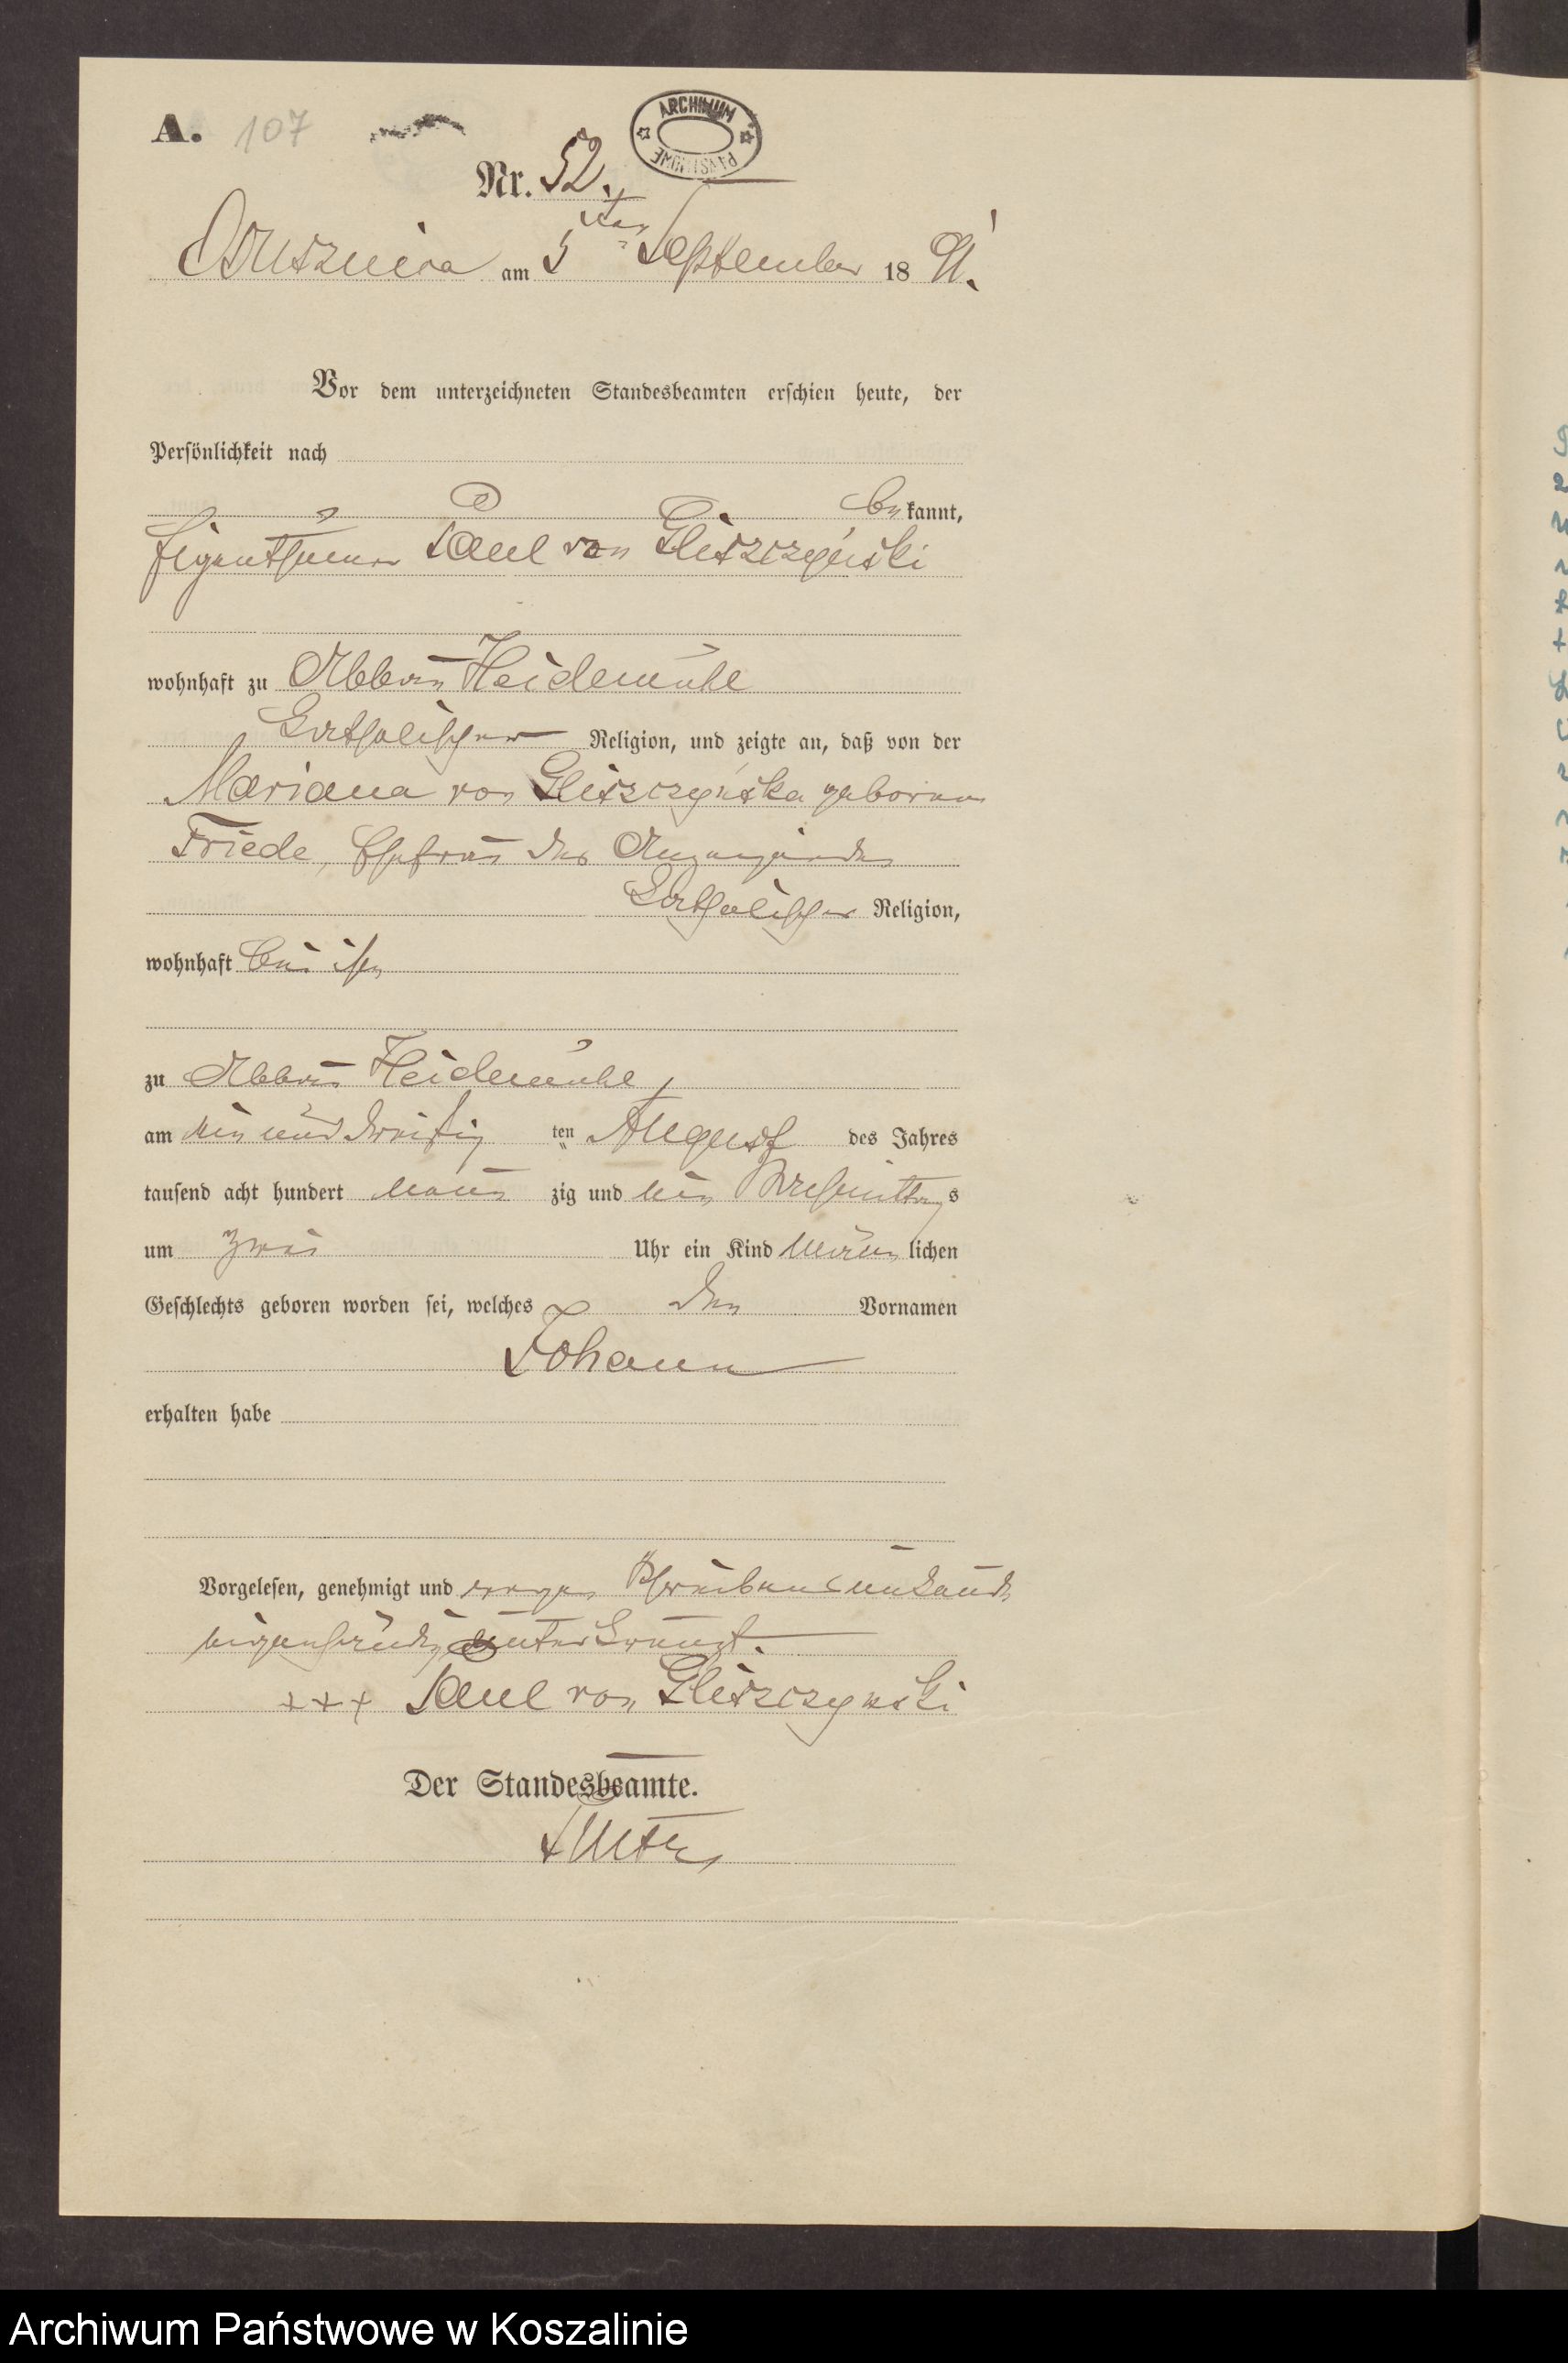 A. 107
ARCHIWUM PAŃSTWOWE
Nr. 52.
am 5ten September 1891.
Vor dem unterzeichneten Standesbeamten erschien heute, der
Persönlichkeit nach
bekannt,
Eigenthümer Paul von Gliszczyński
wohnhaft zu Abbau Heidemühl
katholischer Religion, und zeigte an, daß von der
Mariana von Gliszczyńska geborene
Friede, Ehefrau des Anzeigenden
katholischer Religion,
wohnhaft bei ihm
zu Abbau Heidemühl,
am ein und dreißig ten August des Jahres
tausend acht hundert neun zig und ein Nachmittags
um zwei Uhr ein Kind männlichen
Geschlechts geboren worden sei, welches den Vornamen
Johann
erhalten habe
Vorgelesen, genehmigt und wegen Schreibensunkunde
eigenhändig unterkreuzt.
+++ Paul von Gliszczynski
Der Standesbeamte.
Archiwum Państwowe w Koszalinie